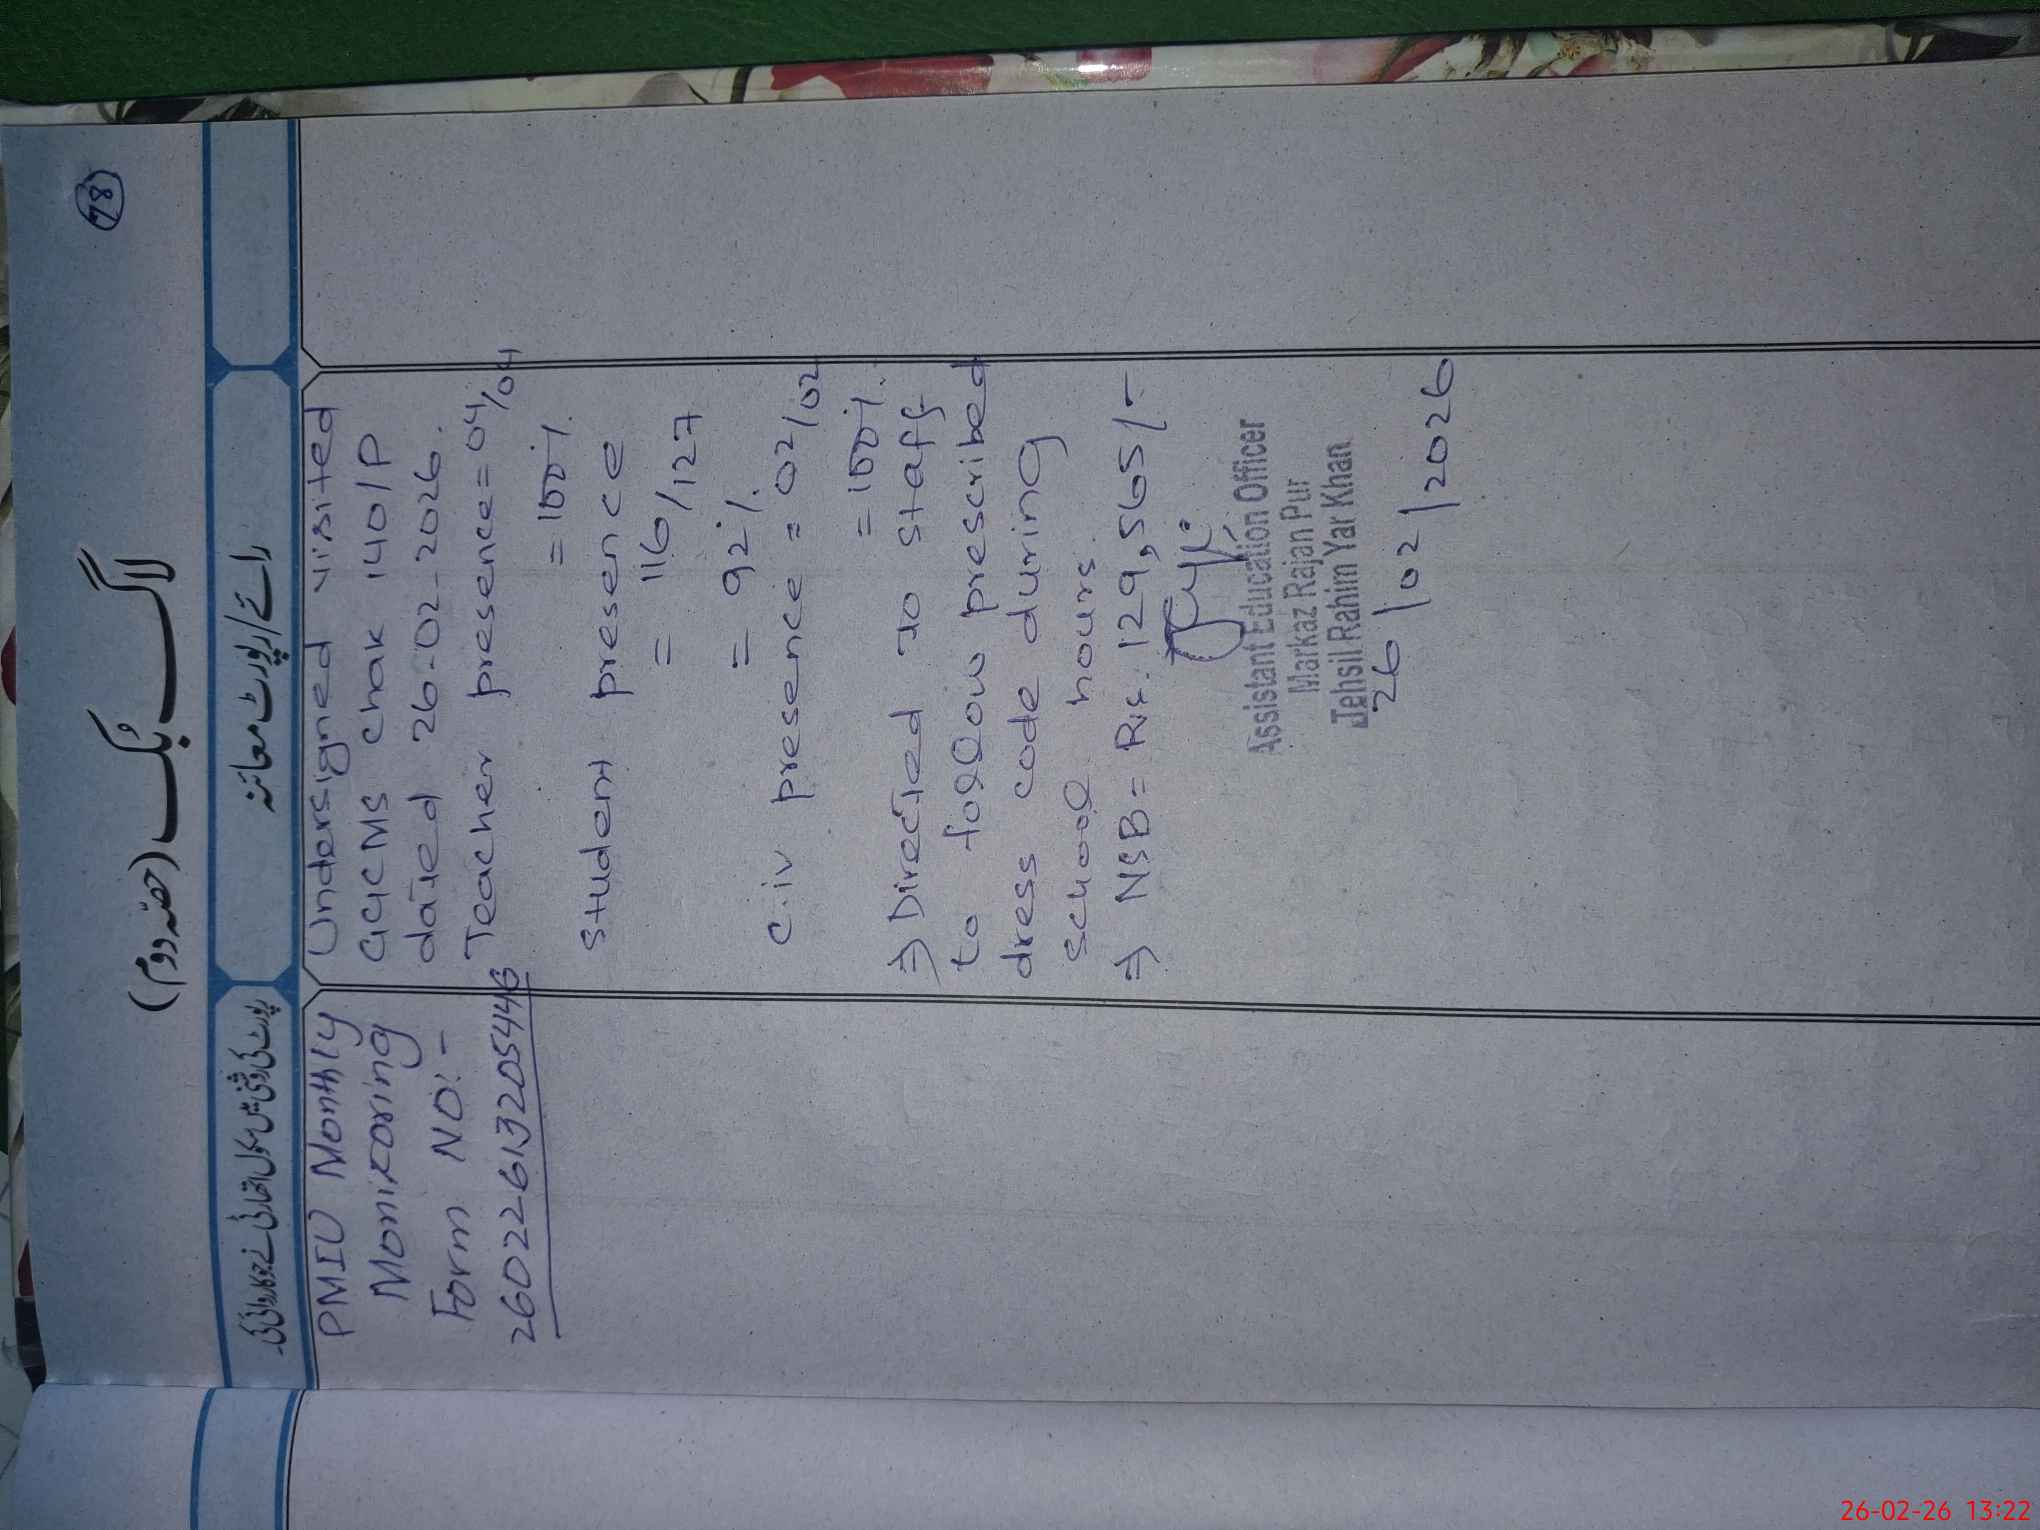 78
لاگ بُک (حصّہ دوم)
رائے/رپورٹ معائنہ
رپورٹ کی روشنی میں سکول اتھارٹی نے جو کاروائی کی
PMIU Monthly
Monitoring
Form NO:-
2602261320544 6
Undersigned visited
GGCMS Chak 140/P
dated 26-02-2026.
Teacher presence = 04/04
= 100%.
Student presence
= 116/127
= 92%.
C.iv presence = 02/02
= 100%.
⇒ Directed to staff
to follow prescribed
dress code during
school hours.
⇒ NSB = Rs. 129,565/-
Assistant Education Officer
Markaz Rajan Pur
Tehsil Rahim Yar Khan
26/02/2026
26-02-26 13:22